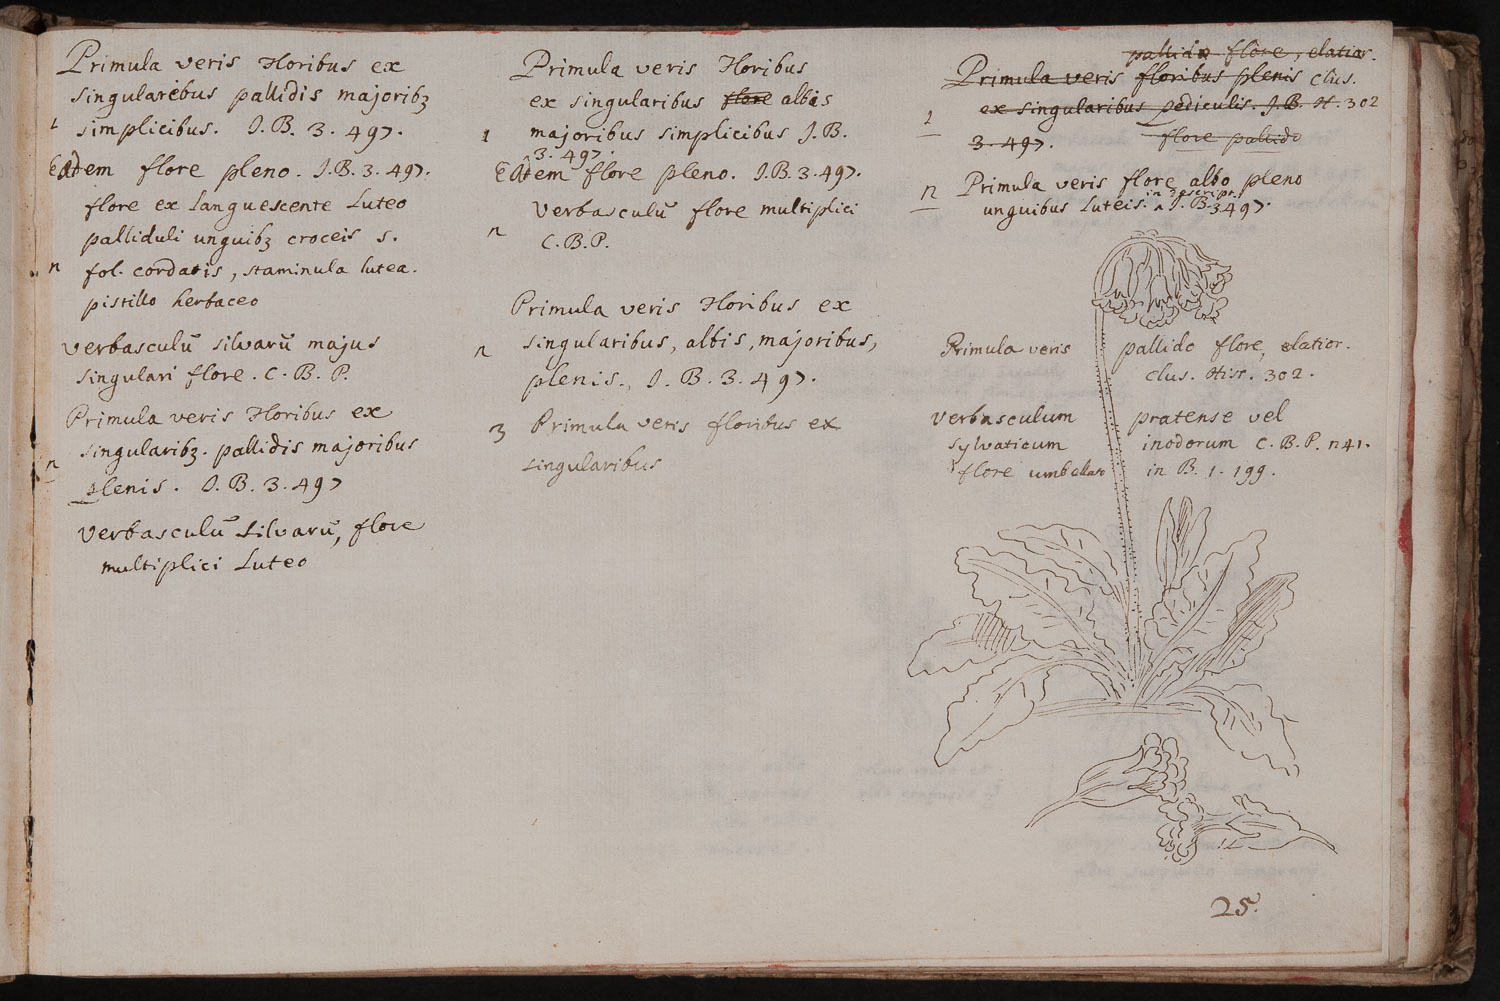 Primula veris floribus ex
singularibus pallidis majoribꝫ
1 simplicibus. J. B. 3. 497.
Eadem flore pleno. J. B. 3. 497.
flore ex languescente luteo
palliduli unguibꝫ croceis s.
n fol. cordatis, staminula lutea.
pistillo herbaceo
Verbasculū silvarū majus
singulari flore. C. B. P.
Primula veris floribus ex
singularibꝫ. pallidis majoribus
n plenis. J. B. 3. 497
Verbasculū silvarū, flore
multiplici luteo
Primula veris floribus
ex singularibus flore albis
1 majoribus simplicibus J. B.
3. 497.
Eadem flore pleno. J. B. 3. 497.
Verbasculū flore multiplici
n C. B. P.
Primula veris floribus ex
n singularibus, albis, majoribus,
plenis., J. B. 3. 497.
3 Primula veris floribus ex
singularibus
pallido flore, elatior.
Primula veris floribus plenis clus.
ex singularibus pediculis. J. B. H. 302
1 3. 497. flore pallido
n Primula veris flore albo pleno
in descript.
unguibus luteis. J. B. 3 497.
Primula veris pallido flore, elatior.
clus. Hist. 302.
Verbasculum pratense vel
sylvaticum inodorum C. B. P. n41.
flore umbellato in B. 1. 199.
25.